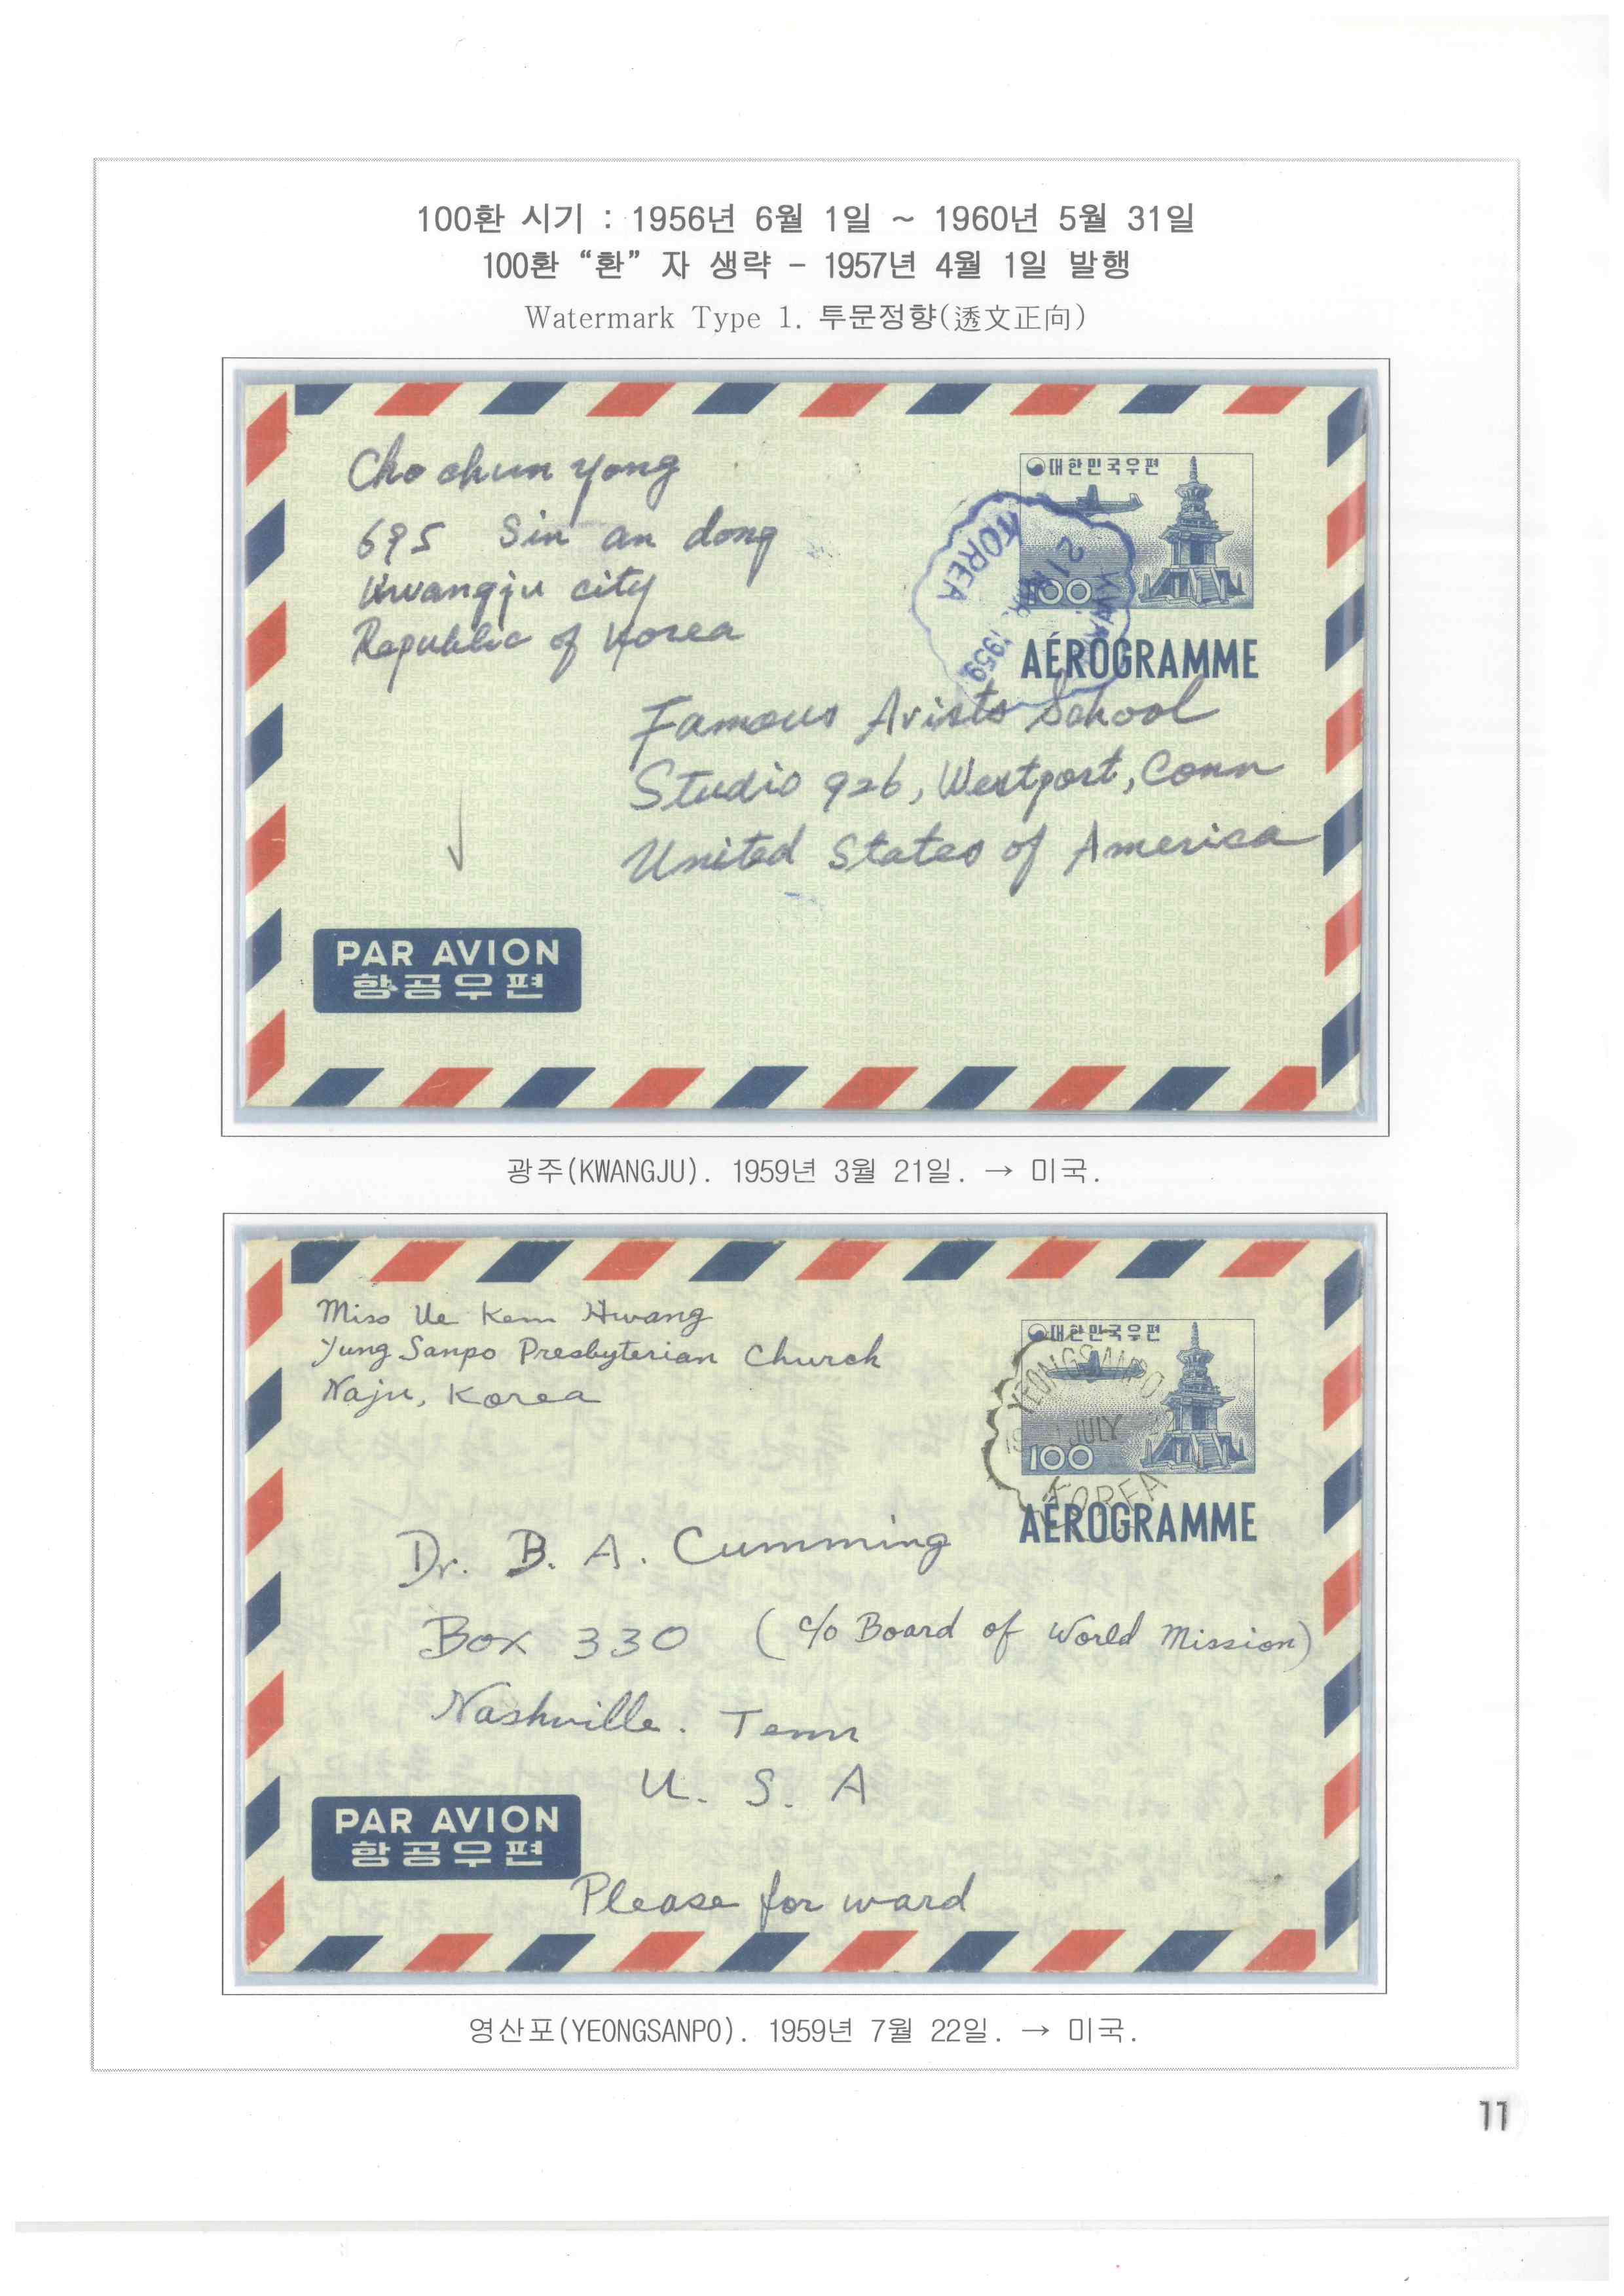 100환 시기 : 1956년 6월 1일 ~ 1960년 5월 31일
100환 “환” 자 생략 - 1957년 4월 1일 발행
Watermark Type 1. 투문정향(透文正向)
Cho chun yong
695 Sin an dong
Kwangju city
Republic of Korea
대한민국우편
100
KOREA
21 1959
AÉROGRAMME
Famous Arists School
Studio 926, Westport, Conn
United States of America
PAR AVION
항공우편
광주(KWANGJU). 1959년 3월 21일. → 미국.
Miss Ue Kem Hwang
Yung Sanpo Presbyterian Church
Naju, Korea
대한민국우편
YEONGSANPO
JULY
100
KOREA
AÉROGRAMME
Dr. B. A. Cumming
Box 330 (c/o Board of World Mission)
Nashville. Tenn
U. S. A
PAR AVION
항공우편
Please for ward
영산포(YEONGSANPO). 1959년 7월 22일. → 미국.
11